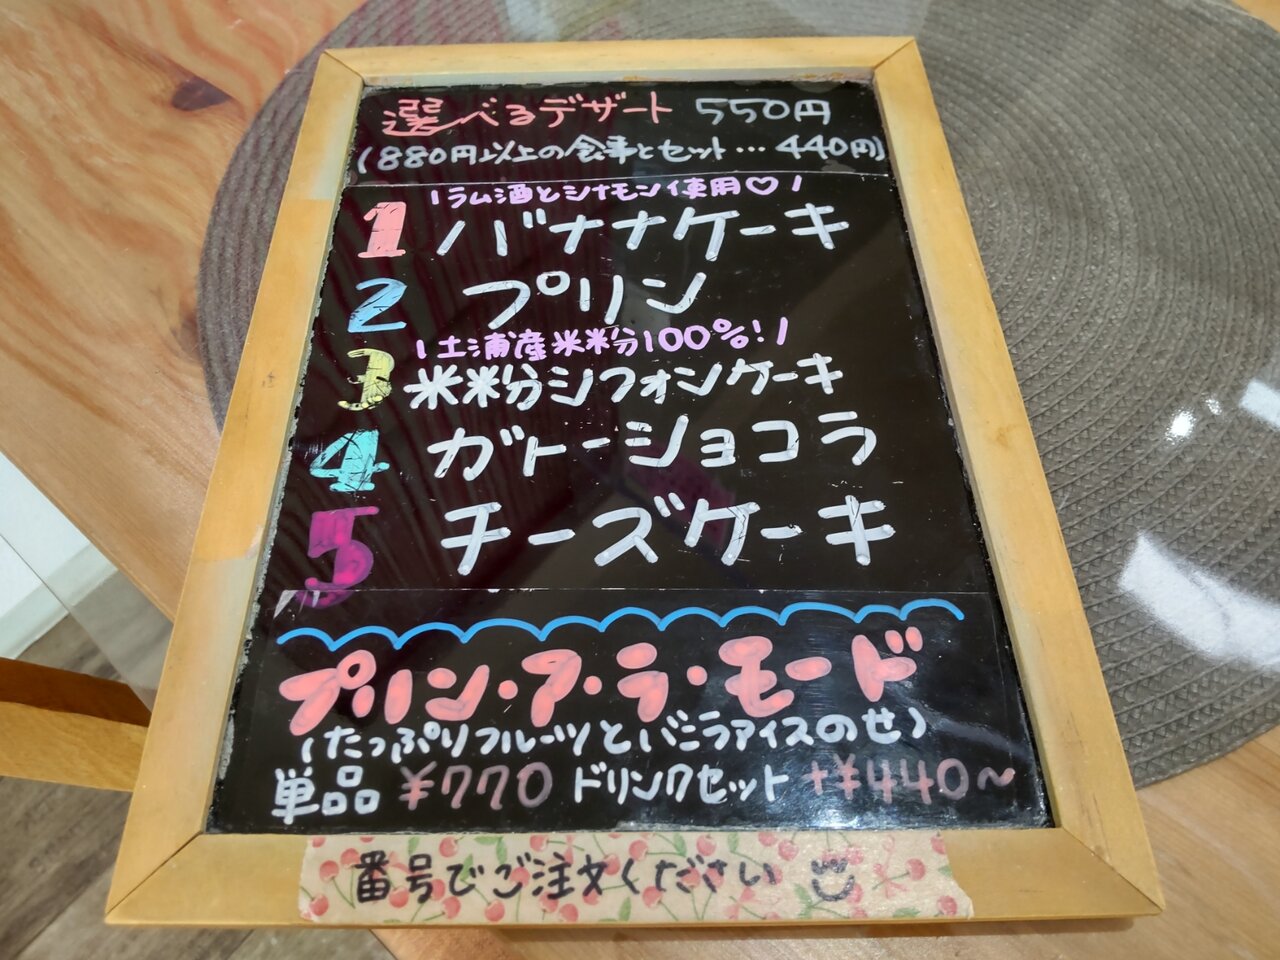 選べるデザート 550円
(880円以上の食事とセット…440円)
\ラム酒とシナモン使用♡/
1 バナナケーキ
2 プリン
\土浦産米粉100%!/
3 米粉シフォンケーキ
4 ガトーショコラ
5 チーズケーキ
プリン・ア・ラ・モード
(たっぷりフルーツとバニラアイスのせ)
単品 ¥770 ドリンクセット +¥440~
番号でご注文ください